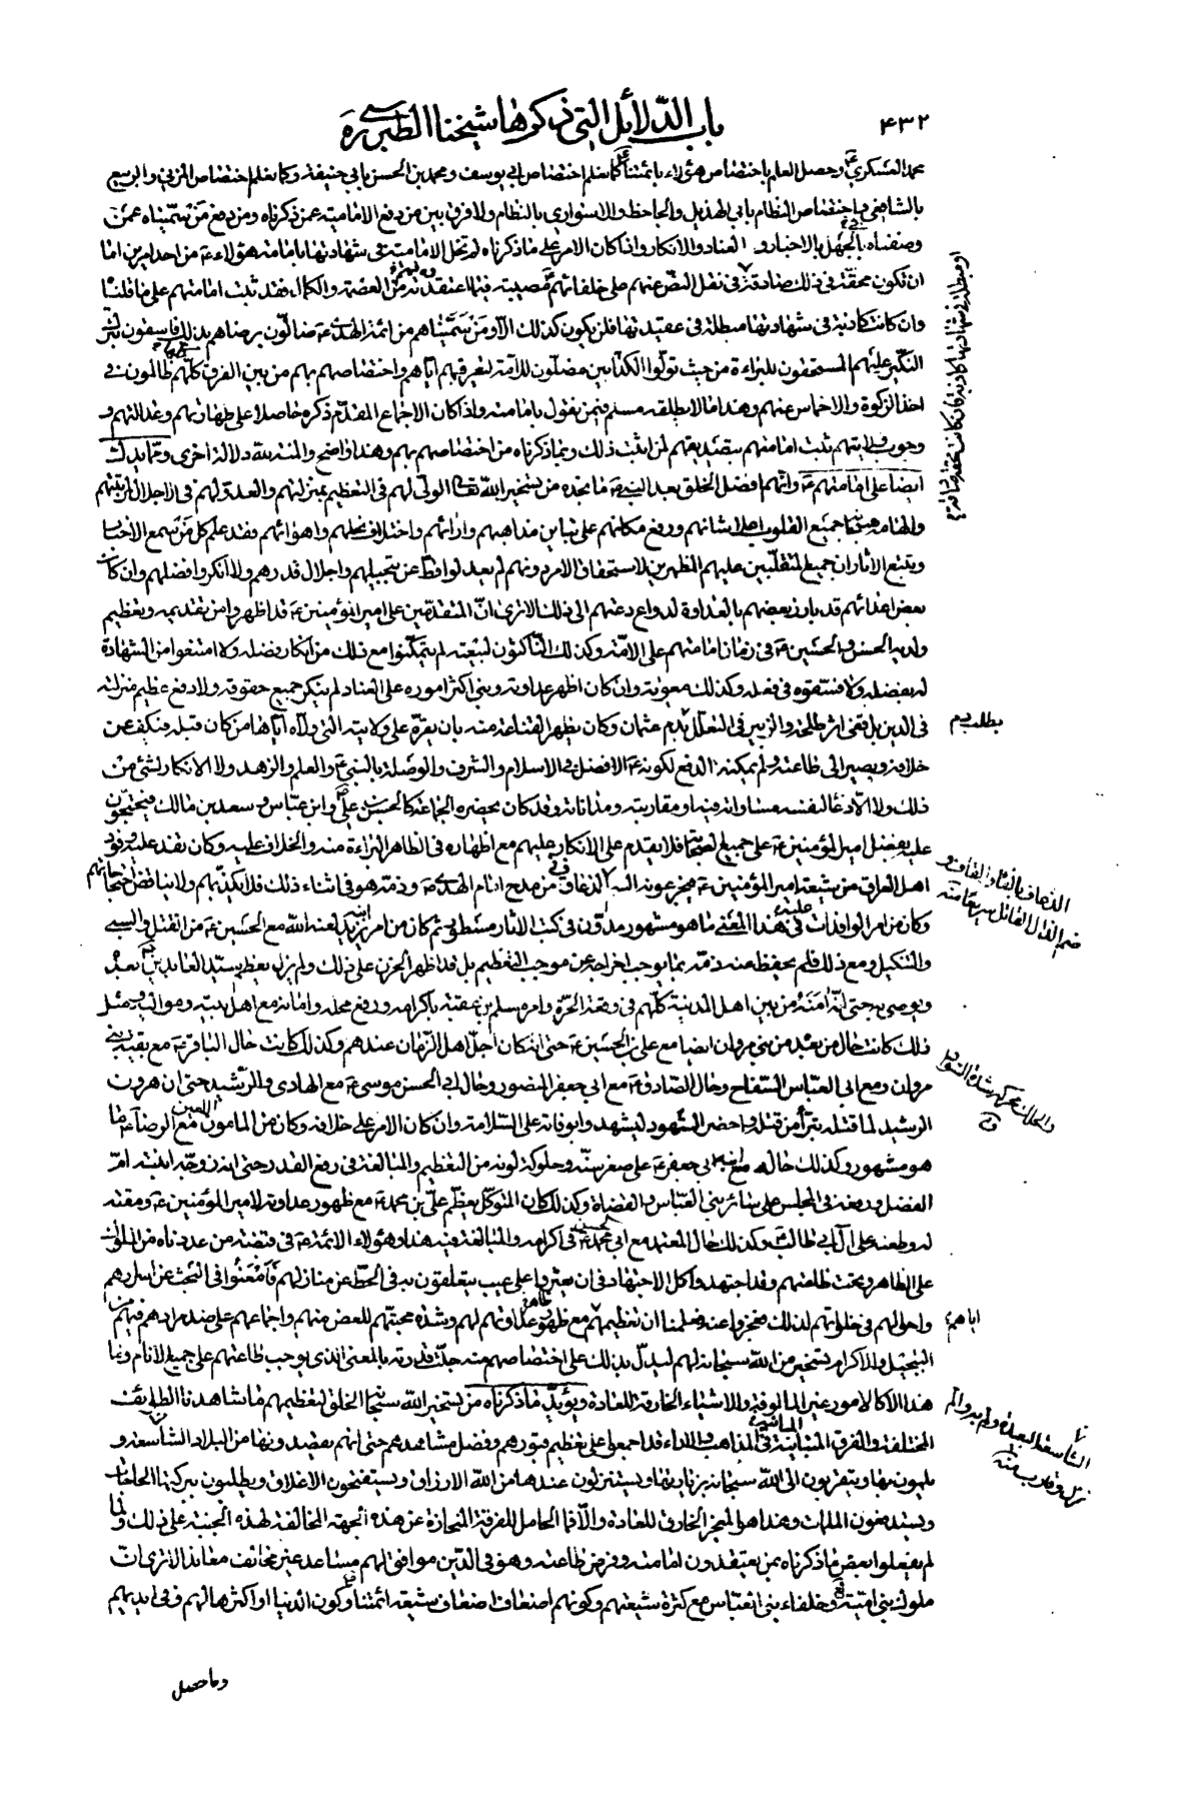 ۴۳۲
باب الدّلائل التي ذكرها شيخنا الطبرسي ره
محمد العسكري ع وحصل العلم باختصاص هؤلاء بائمتنا كما نعلم اختصاص ابي يوسف ومحمد بن الحسن بابي حنيفة وكما نعلم اختصاص المزني والربيع
بالشافعي واختصاص النظام بابي الهذيل والجاحظ والاسواري بالنظام ولا فرق بين من دفع الامامية عمن ذكرناه ومن دفع من سمّيناه عمن
وصفناه في الجهل بالاخبار و العناد والانكار واذا كان الامر على ما ذكرناه لم تخل الامامية في شهادتها بامامة هؤلاء ع من احد امرين اما
ان تكون محقة في ذلك صادقة في نقل النص عنهم على خلفائهم ع مصيبة فيما اعتقدته فيهم من العصمة والكمال فقد ثبت امامتهم على ما قلناه
وان كانت كاذبة في شهادتها مبطلة في عقيدتها فلن يكون كذلك الا ومن سمّيناهم من ائمة الهدى ع ضالّون برضاهم بذلك فاسقون بترك
النكير عليهم المستحقون للبراءة من حيث تولّوا الكذابين مضلّون للامة لتقريبهم اياهم واختصاصهم بهم من بين الفرق كلّهم ظالمون في
اخذ الزكوة والاخماس عنهم وهذا ما لا يطلقه مسلم فيمن يقول بامامته واذا كان الاجماع المقدّم ذكره حاصلا على طهارتهم وعدالتهم و
وجوب ولايتهم ثبت امامتهم بتصديقهم لمن اثبت ذلك وبما ذكرناه من اختصاصهم بهم وهذا واضح والمنة لله دلالة اخرى ومما يدلّ
ايضا على امامتهم ع وانهم افضل الخلق بعد النبي ص ما نجده من تسخير الله تعالى الوليّ لهم في التعظيم بمنزلتهم والعدوّ لهم في الاجلال لمرتبتهم
والهامه سبحانه جميع القلوب اعلاء شانهم ورفع مكانهم على تباين مذاهبهم وارائهم واختلاف نحلهم واهوائهم فقد علم كل من سمع الاخبار
وتتبع الاثار ان جميع المتغلّبين عليهم المظهرين لاستحقاق الامر دونهم لم يعدلوا قطّ عن تبجيلهم واجلال قدرهم ولا انكروا فضلهم وان كان
بعض اعدائهم قد بارز بعضهم بالعداوة لدواع دعتهم الى ذلك الا ترى انّ المتقدّمين على امير المؤمنين ع قد اظهروا من تقديمه وتعظيم
ولديه الحسن والحسين ع في زمان امامتهم على الامّة وكذلك النّاكثون لبيعته لم يتمكّنوا مع ذلك من انكار فضله ولا امتنعوا من الشهادة
له بفضله ولا فسّقوه في فعله وكذلك معوية وان كان اظهر عداوته وبنى اكثر اموره على العناد لم ينكر جميع حقوقه ولا دفع عظيم منزلته
في الدين بل قفى اثر طلحة والزبير في التعلّل بدم عثمان وكان يظهر القناعة منه بان يقرّه على ولايته التي ولّاه اياها من كان قبله فيكف عن
خلافه ويصير الى طاعته ولم يمكنه الدفع لكونه ع الافضل في الاسلام والشرف والوصلة بالنبي ع والعلم والزهد ولا الانكار لشئ من
ذلك ولا الادّعا لنفسه مساواته فيه او مقاربته ومداناته وقد كان يحضره الجماعة كالحسن بن علي وابن عباس وسعد بن مالك فيحتجّون
عليه بفضل امير المؤمنين ع على جميع الصحابة فلا يقدم على الانكار عليهم مع اظهاره في الظاهر البراءة منه والخلاف عليه وكان تفد عليه وفود
اهل العراق من شيعة امير المؤمنين ع فيجرعونه السم الذعاف من مدح امام الهدى ع وذمّه هو في اثناء ذلك فلا يكذّبهم ولا يناقض احتجاجاتهم
وكان من امر الوافدات عليه في هذا المعنى ما هو مشهور مدوّن في كتب الاثار مسطور ثم كان من امر ابنه يزيد لعنه الله مع الحسين ع من القتل والسبي
والتنكيل ومع ذلك فلم يحفظ عنه ذمّه بما يوجب اخراجه عن موجب التعظيم بل قد اظهر الحزن على ذلك ولم يزل يعظم سيّد العابدين بعده
ويوصي به حتى انّه امنه من بين اهل المدينة كلّهم في وقعة الحرّة وامر مسلم بن عقبة باكرامه ورفع محله وامانه مع اهل بيته ومواليه ومثل
ذلك كانت حال من بعده من بني مروان ايضا مع علي بن الحسين ع حتى انه كان اجلّ اهل الزّمان عندهم وكذلك كانت حال الباقر ع مع بقية بني
مروان ومع ابي العباس السّفاح وحال الصّادق ع مع ابي جعفر المنصور وحال ابي الحسن موسى ع مع الهادي والرّشيد حتى ان هرون
الرشيد لما قتله تبرأ من قتله واحضر الشهود ليشهدوا بوفاته على السّلامة وان كان الامر على خلافه وكان من المامون مع الرضا ع ما
هو مشهور وكذلك حاله مع ابنه ابي جعفر ع على صغر سنّه وحلوكة لونه من التعظيم والمبالغة في رفع القدر حتى انه زوّجه ابنته امّ
الفضل ورفعه في المجلس على سائر بني العبّاس والقضاة وكذلك كان المتوكّل يعظّم عليّ بن محمد ع مع ظهور عداوته لامير المؤمنين ع ومقته
له وطعنه على آل ابي طالب وكذلك حال المعتمد مع ابي محمد الحسن ع في اكرامه والمبالغة فيه هذا وهؤلاء الائمة ع في قبضة من عددناه من الملوك
على الظاهر وتحت طاعتهم وقد اجتهدوا كل الاجتهاد في ان يعثروا على عيب يتعلقون به في الحطّ عن منازلهم فامعنوا في البحث عن اسرارهم
واحوالهم في خلواتهم لذلك فعجزوا عنه فعلمنا ان تعظيمهم مع ظاهر عداوتهم لهم وشدة محبتهم للغض منهم واجماعهم على ضد مرادهم فيهم من
التبجيل والاكرام تسخير من الله سبحانه لهم ليدلّ بذلك على اختصاصهم منه جلّت قدرته بالمعنى الذي يوجب طاعتهم على جميع الانام وما
هذا الا كالامور غير المالوفة والاشياء الخارقة للعادة ويؤيّد ما ذكرناه من تسخير الله سبحانه الخلق لتعظيمهم ما شاهدنا الطوايف
المختلفة والفرق المتباينة في المذاهب والاراء قد اجمعوا على تعظيم قبورهم وفضل مشاهدهم حتى انهم يقصدونها من البلاد الشاسعة و
يلمون بها ويتقربون الى الله سبحانه بزيارتها ويستنزلون عندها من الله الارزاق ويستفتحون الاغلاق ويطلبون ببركتها الحاجات
ويستدفعون الملمات وهذا هو المعجز الخارق للعادة والا فما الحامل للفرقة المنحازة عن هذه الجهة المخالفة لهذه الجنبة على ذلك ولم
لم يفعلوا بعض ما ذكرناه بمن يعتقدون امامته وفرض طاعته وهو في الدّين موافق لهم مساعد غير مخالف معاند الا ترى ان
ملوك بني امية وخلفاء بني العباس مع كثرة شيعتهم وكونهم اضعاف اضعاف شيعة ائمتنا وكون الدنيا او اكثرها لهم وفي ايديهم
وما حصل
بطلب دم
الذعاف بالفاء والقاف و
ضم الذال القاتل سريعا منه
والحلوكة محركة شدة السواد
ق
اياهم
الشاسعة البعيدة والم به والم
نزل وقارب منه